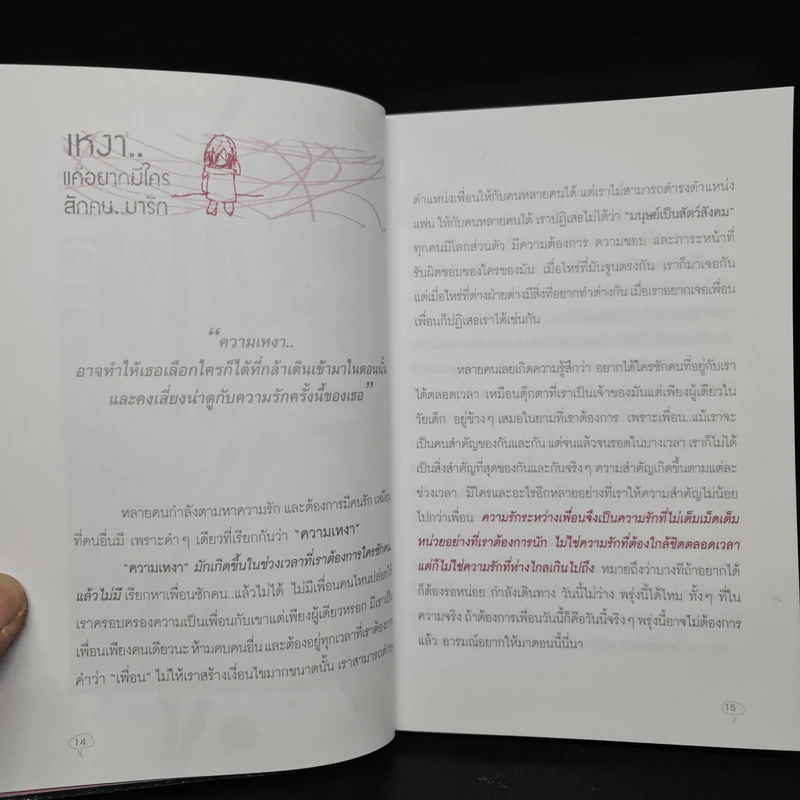 เหงา..
แค่อยากมีใคร
สักคน..มารัก
“ความเหงา..
อาจทำให้เธอเลือกใครก็ได้ที่กล้าเดินเข้ามาในตอนนั้น
และคงเสี่ยงน่าดูกับความรักครั้งนี้ของเธอ”
หลายคนกำลังตามหาความรัก และต้องการมีคนรัก เหมือน
ที่คนอื่นมี เพราะคำๆ เดียวที่เรียกกันว่า “ความเหงา”
“ความเหงา” มักเกิดขึ้นในช่วงเวลาที่เราต้องการใครซักคน
แล้วไม่มี เรียกหาเพื่อนซักคน..แล้วไม่ได้ ไม่มีเพื่อนคนไหนปล่อยให้
เราครอบครองความเป็นเพื่อนกับเขาแต่เพียงผู้เดียวหรอก มีเราเป็น
เพื่อนเพียงคนเดียวนะ ห้ามคบคนอื่น และต้องอยู่ทุกเวลาที่เราต้องการ
คำว่า “เพื่อน” ไม่ให้เราสร้างเงื่อนไขมากขนาดนั้น เราสามารถดำรง
14
ตำแหน่งเพื่อนให้กับคนหลายคนได้ แต่เราไม่สามารถดำรงตำแหน่ง
แฟน ให้กับคนหลายคนได้ เราปฏิเสธไม่ได้ว่า “มนุษย์เป็นสัตว์สังคม”
ทุกคนมีโลกส่วนตัว มีความต้องการ ความชอบ และภาระหน้าที่
รับผิดชอบของใครของมัน เมื่อไหร่ที่มันจูนตรงกัน เราก็มาเจอกัน
แต่เมื่อไหร่ที่ต่างฝ่ายต่างมีสิ่งที่อยากทำต่างกัน เมื่อเราอยากเจอเพื่อน
เพื่อนก็ปฏิเสธเราได้เช่นกัน
หลายคนเลยเกิดความรู้สึกว่า อยากได้ใครซักคนที่อยู่กับเรา
ได้ตลอดเวลา เหมือนตุ๊กตาที่เราเป็นเจ้าของมันแต่เพียงผู้เดียวใน
วัยเด็ก อยู่ข้างๆ เสมอในยามที่เราต้องการ เพราะเพื่อน..แม้เราจะ
เป็นคนสำคัญของกันและกัน แต่จนแล้วจนรอดในบางเวลา เราก็ไม่ได้
เป็นสิ่งสำคัญที่สุดของกันและกันจริงๆ ความสำคัญเกิดขึ้นตามแต่ละ
ช่วงเวลา มีใครและอะไรอีกหลายอย่างที่เราให้ความสำคัญไม่น้อย
ไปกว่าเพื่อน ความรักระหว่างเพื่อนจึงเป็นความรักที่ไม่เต็มเม็ดเต็ม
หน่วยอย่างที่เราต้องการนัก ไม่ใช่ความรักที่ต้องใกล้ชิดตลอดเวลา
แต่ก็ไม่ใช่ความรักที่ห่างไกลเกินไปถึง หมายถึงบางทีถ้าอยากได้
ก็ต้องรอหน่อย กำลังเดินทาง วันนี้ไม่ว่าง พรุ่งนี้ได้ไหม ทั้งๆ ที่ใน
ความจริง ถ้าต้องการเพื่อนวันนี้ก็คือวันนี้จริงๆ พรุ่งนี้อาจไม่ต้องการ
แล้ว อารมณ์อยากให้มาตอนนี้นี่นา
15